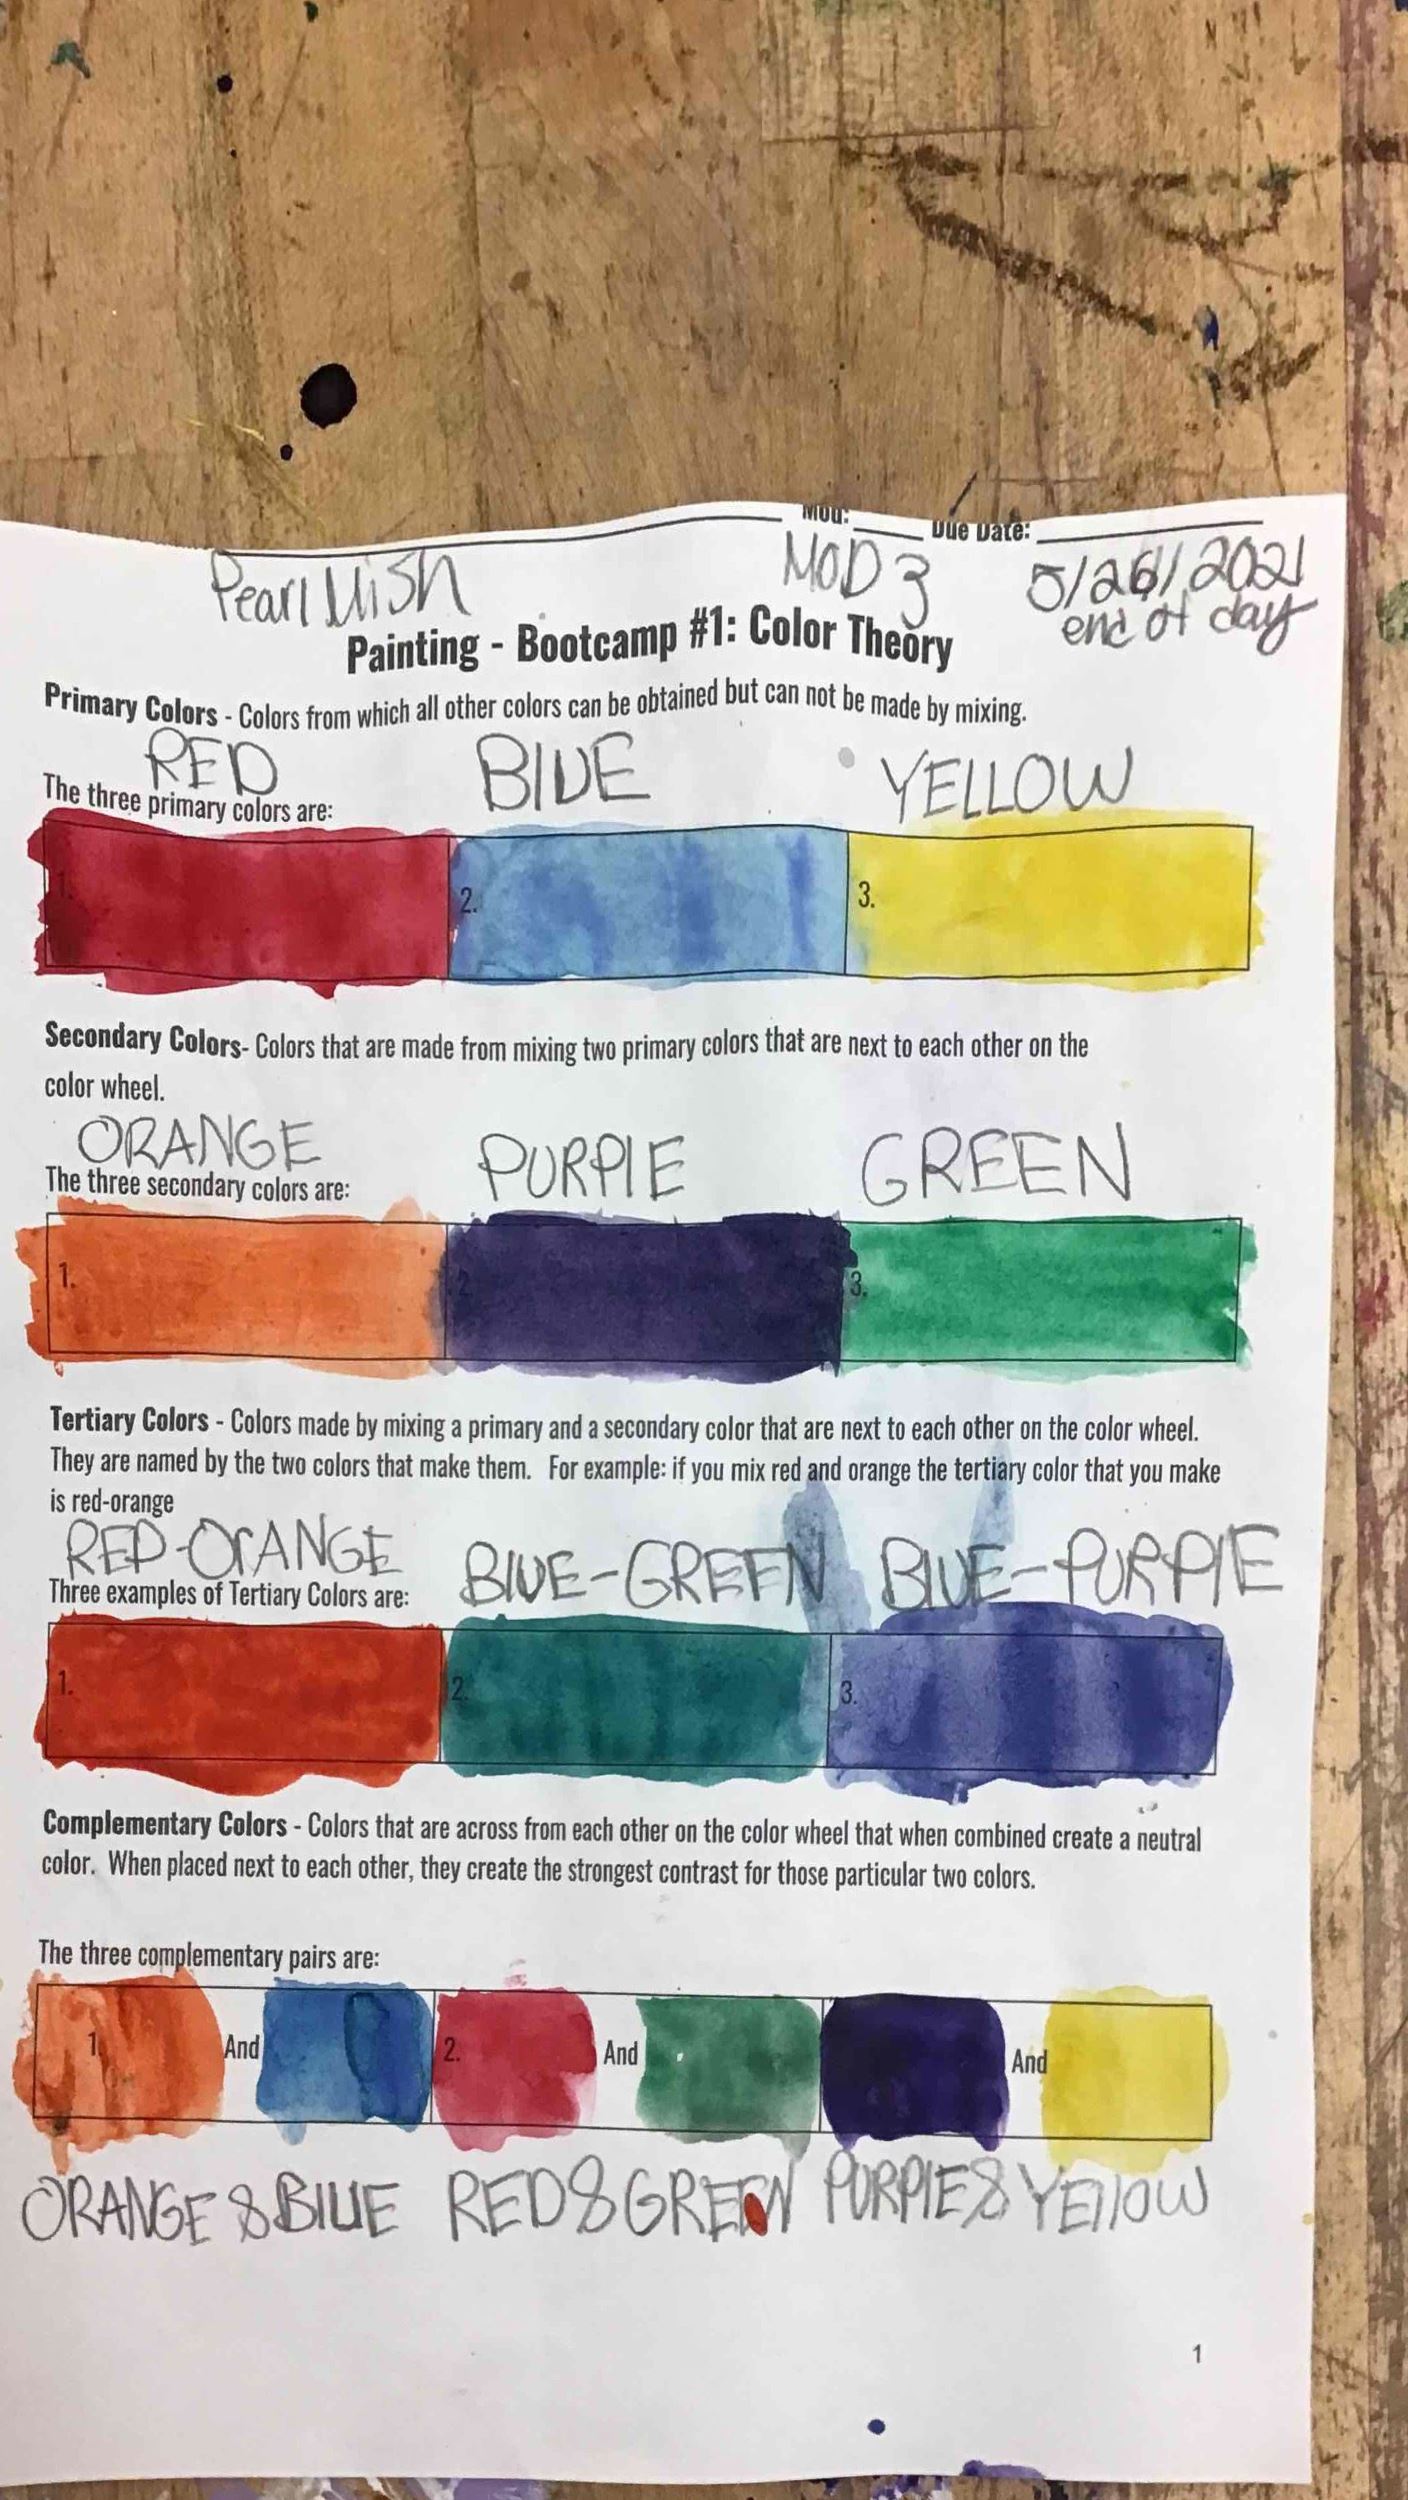 Mod: Due Date:
Pearl Mish MOD 3 5/26/2021
end of day
Painting - Bootcamp #1: Color Theory
Primary Colors - Colors from which all other colors can be obtained but can not be made by mixing.
RED BlUE YELLOW
The three primary colors are:
1. 2. 3.
Secondary Colors- Colors that are made from mixing two primary colors that are next to each other on the
color wheel.
ORANGE PURPlE GREEN
The three secondary colors are:
1. 2. 3.
Tertiary Colors - Colors made by mixing a primary and a secondary color that are next to each other on the color wheel.
They are named by the two colors that make them. For example: if you mix red and orange the tertiary color that you make
is red-orange
RED-OrANGE BlUE-GREEN BlUE-PURPlE
Three examples of Tertiary Colors are:
1. 2. 3.
Complementary Colors - Colors that are across from each other on the color wheel that when combined create a neutral
color. When placed next to each other, they create the strongest contrast for those particular two colors.
The three complementary pairs are:
1. And 2. And And
ORANGE & BlUE RED & GREEN PURPlE & YEllOW
1